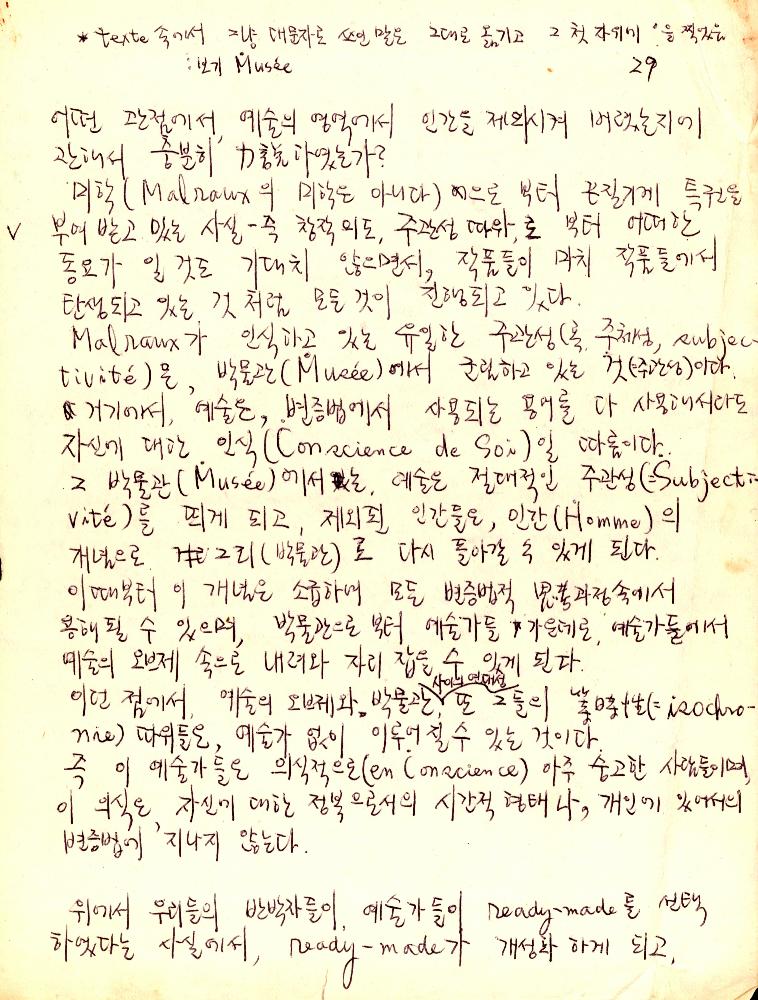 * texte 속에서 그냥 대문자로 쓰인 말은 그대로 옮기고 그 첫 자위에 °을 찍었음
: 보기 M̊usée 29
어떤 관점에서, 예술의 영역에서 인간을 제외시켜 버렸는지에
관해서 충분히 力說하였는가?
미학(Malraux의 미학은 아니다)으로 부터 끈질기게 특권을
v 부여 받고 있는 사실-즉 창작 의도, 주관성 따위,로 부터 어떠한
동요가 일 것도 기대치 않으면서, 작품들이 마치 작품들에서
탄생되고 있는 것 처럼 모든 것이 진행되고 있다.
Malraux가 인식하고 있는 유일한 주관성(혹, 주체성, subjec-
tivité)은, 박물관(M̊usée)에서 군림하고 있는 것(주관성)이다.
거기에서, 예술은, 변증법에서 사용되는 용어를 다 사용해서라도
자신에 대한 인식(C̊onscience de Soi)일 따름이다.
그 박물관(M̊usée)에서는, 예술은 절대적인 주관성(=Subjecti-
vité)를 띄게 되고, 제외된 인간들은, 인간(H̊omme)의
개념으로 그리(박물관)로 다시 돌아갈 수 있게 된다.
이때부터 이 개념은 소급하며 모든 변증법적 思考과정속에서
용해될 수 있으며, 박물관으로 부터 예술가들 가운데로, 예술가들에서
예술의 오브제 속으로 내려와 자리 잡을 수 있게 된다.
이런 점에서, 예술의 오브제와 박물관, 사이의 연대성 또 그들의 等時性(=isochro-
nie) 따위들은, 예술가 없이 이루어 질 수 있는 것이다.
즉 이 예술가들은 의식적으로(en C̊onscience) 아주 숭고한 사람들이며,
이 의식은, 자신에 대한 정복으로서의 시간적 형태나, 개인에 있어서의
변증법에 지나지 않는다.
위에서 우리들의 반박자들이, 예술가들이 ready-made를 선택
하였다는 사실에서, ready-made가 개성화 하게 되고,